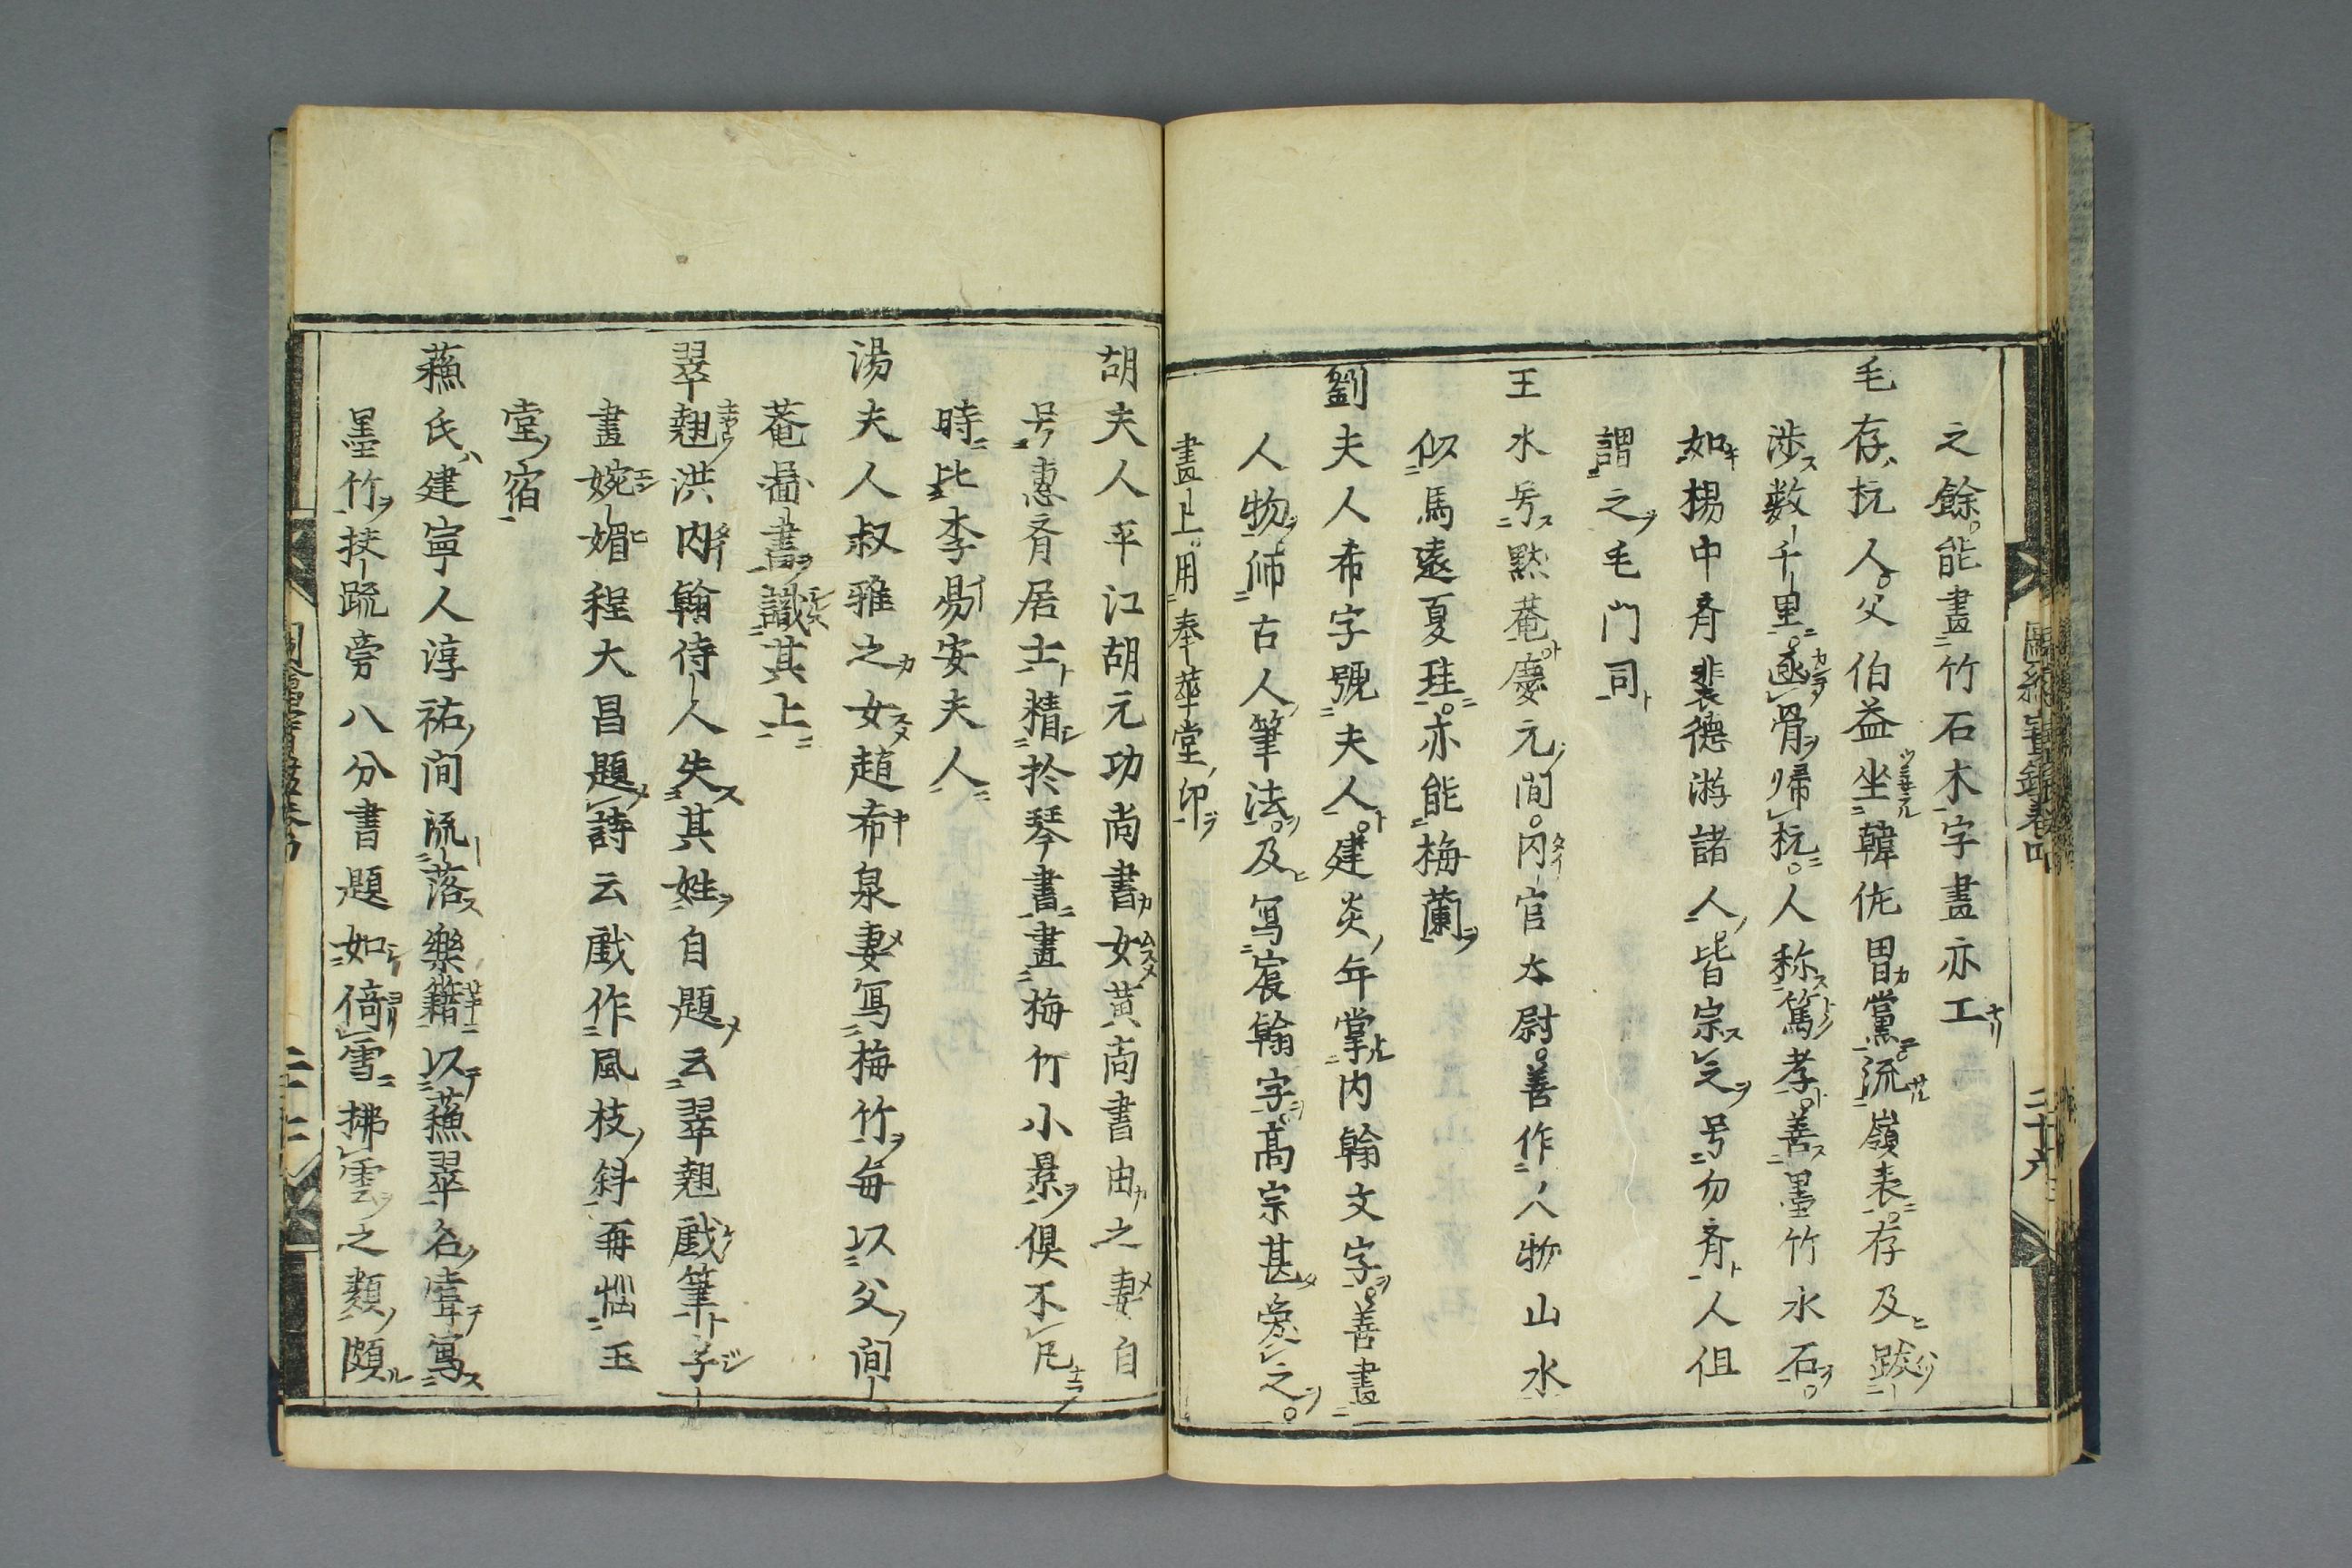 之餘能畫竹石木字畫亦工
毛存杭人父伯益坐韓侂冑黨流嶺表存及跋
渉数千里函骨帰杭人称篤孝善墨竹水石
如楊中斉裴德游諸人皆宗之号勿斉人但
謂之毛門司
王水号黙菴慶元間内官太尉善作人物山水
似馬遠夏珪亦能梅蘭
劉夫人希字號夫人建炎年掌内翰文字善畫
人物師古人筆法及写宸翰字高宗甚愛之
畫上用奉華堂印
胡夫人平江胡元功尚書女黄尚書由之妻自
号惠斉居士精於琴書畫梅竹小景俱不凡
時比李易安夫人
湯夫人叔雅之女趙希泉妻写梅竹毎以父間
菴啚書識其上
翠翹洪内翰侍人失其姓自題云翠翹戲筆字
畫婉媚程大昌題詩云戲作風枝斜再惱玉
堂宿
蘓氏建寧人淳祐間流落樂籍以蘓翠名嘗寫
墨竹挟疏旁八分書題如倚雪拂雲之類頗